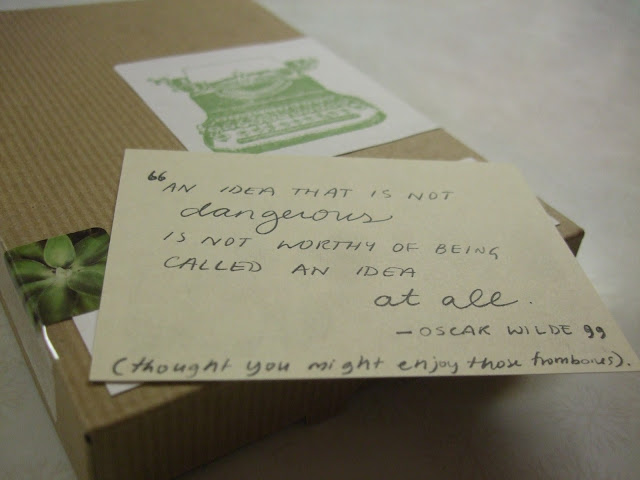 “AN IDEA THAT IS NOT
dangerous
IS NOT WORTHY OF BEING
CALLED AN IDEA
at all.
—OSCAR WILDE ”
(thought you might enjoy those trombones).